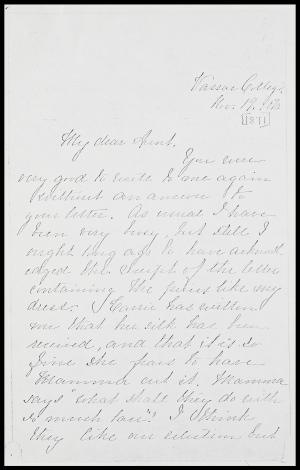 Vassar College,
Nov. 19.
1871
My dear Aunt.
You were
very good to write to me again
without an answer to
your letter. As usual I have
been very busy, but still I
ought long ago to have acknowl-
edged the receipt of the letter
containing the piece like my
dress. Carrie has written
me that her silk has been
received, and that it is so
fine she fears to have
Mamma cut it. Mamma
says "what shall they do with
so much lace"? I think
they like our selection but